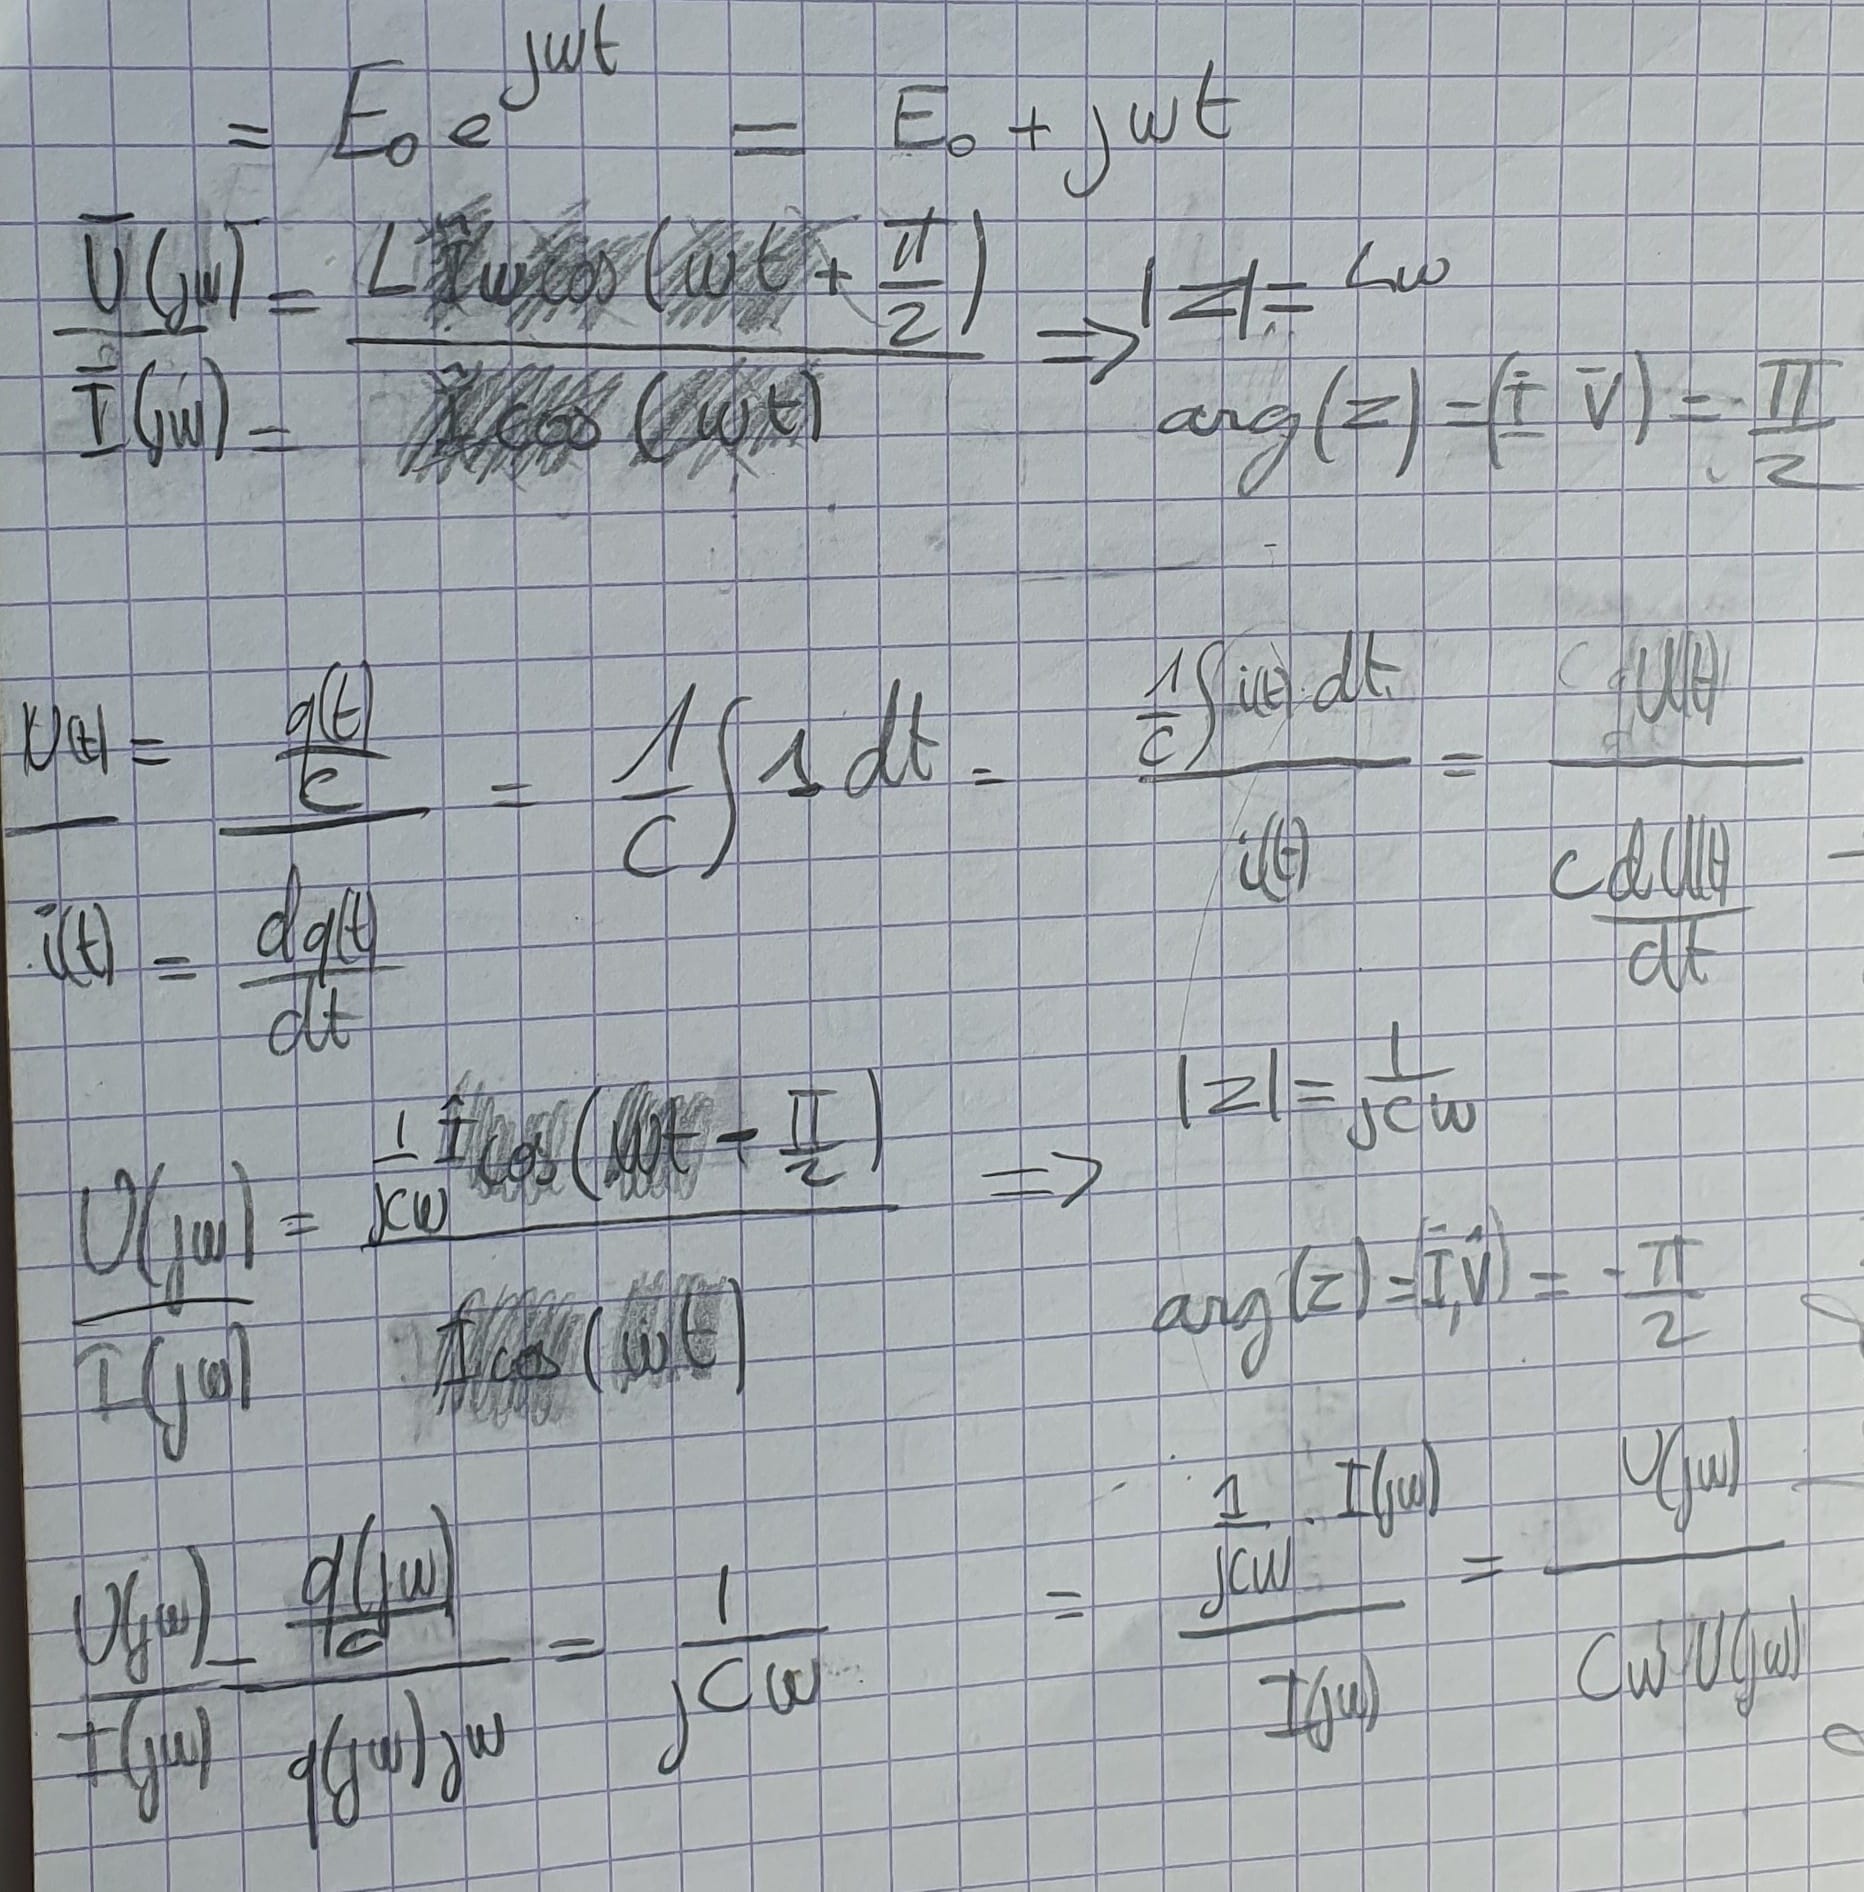 = E₀ e^{jωt} = E₀ + jωt
Ū(jω) / Ī(jω) = L Î ω cos(ωt + π/2) / Î cos(ωt) ⇒ |Z| = Lω
arg(z) = (Ī V̄) = π/2
U(t) / i(t) = (q(t)/C) / (dq(t)/dt) = 1/C ∫ 1 dt = (1/C ∫ i(t) dt) / i(t) = U(t) / (C dU(t)/dt)
U(jω) / I(jω) = (1/jCω) Î cos(ωt - π/2) / Î cos(ωt) ⇒ |Z| = 1/jCω
arg(z) = (Ī, V̂) = -π/2
U(jω) / I(jω) = (q(jω)/C) / (q(jω) jω) = 1/jCω = (1/jCω . I(jω)) / I(jω) = U(jω) / (Cω U(jω))